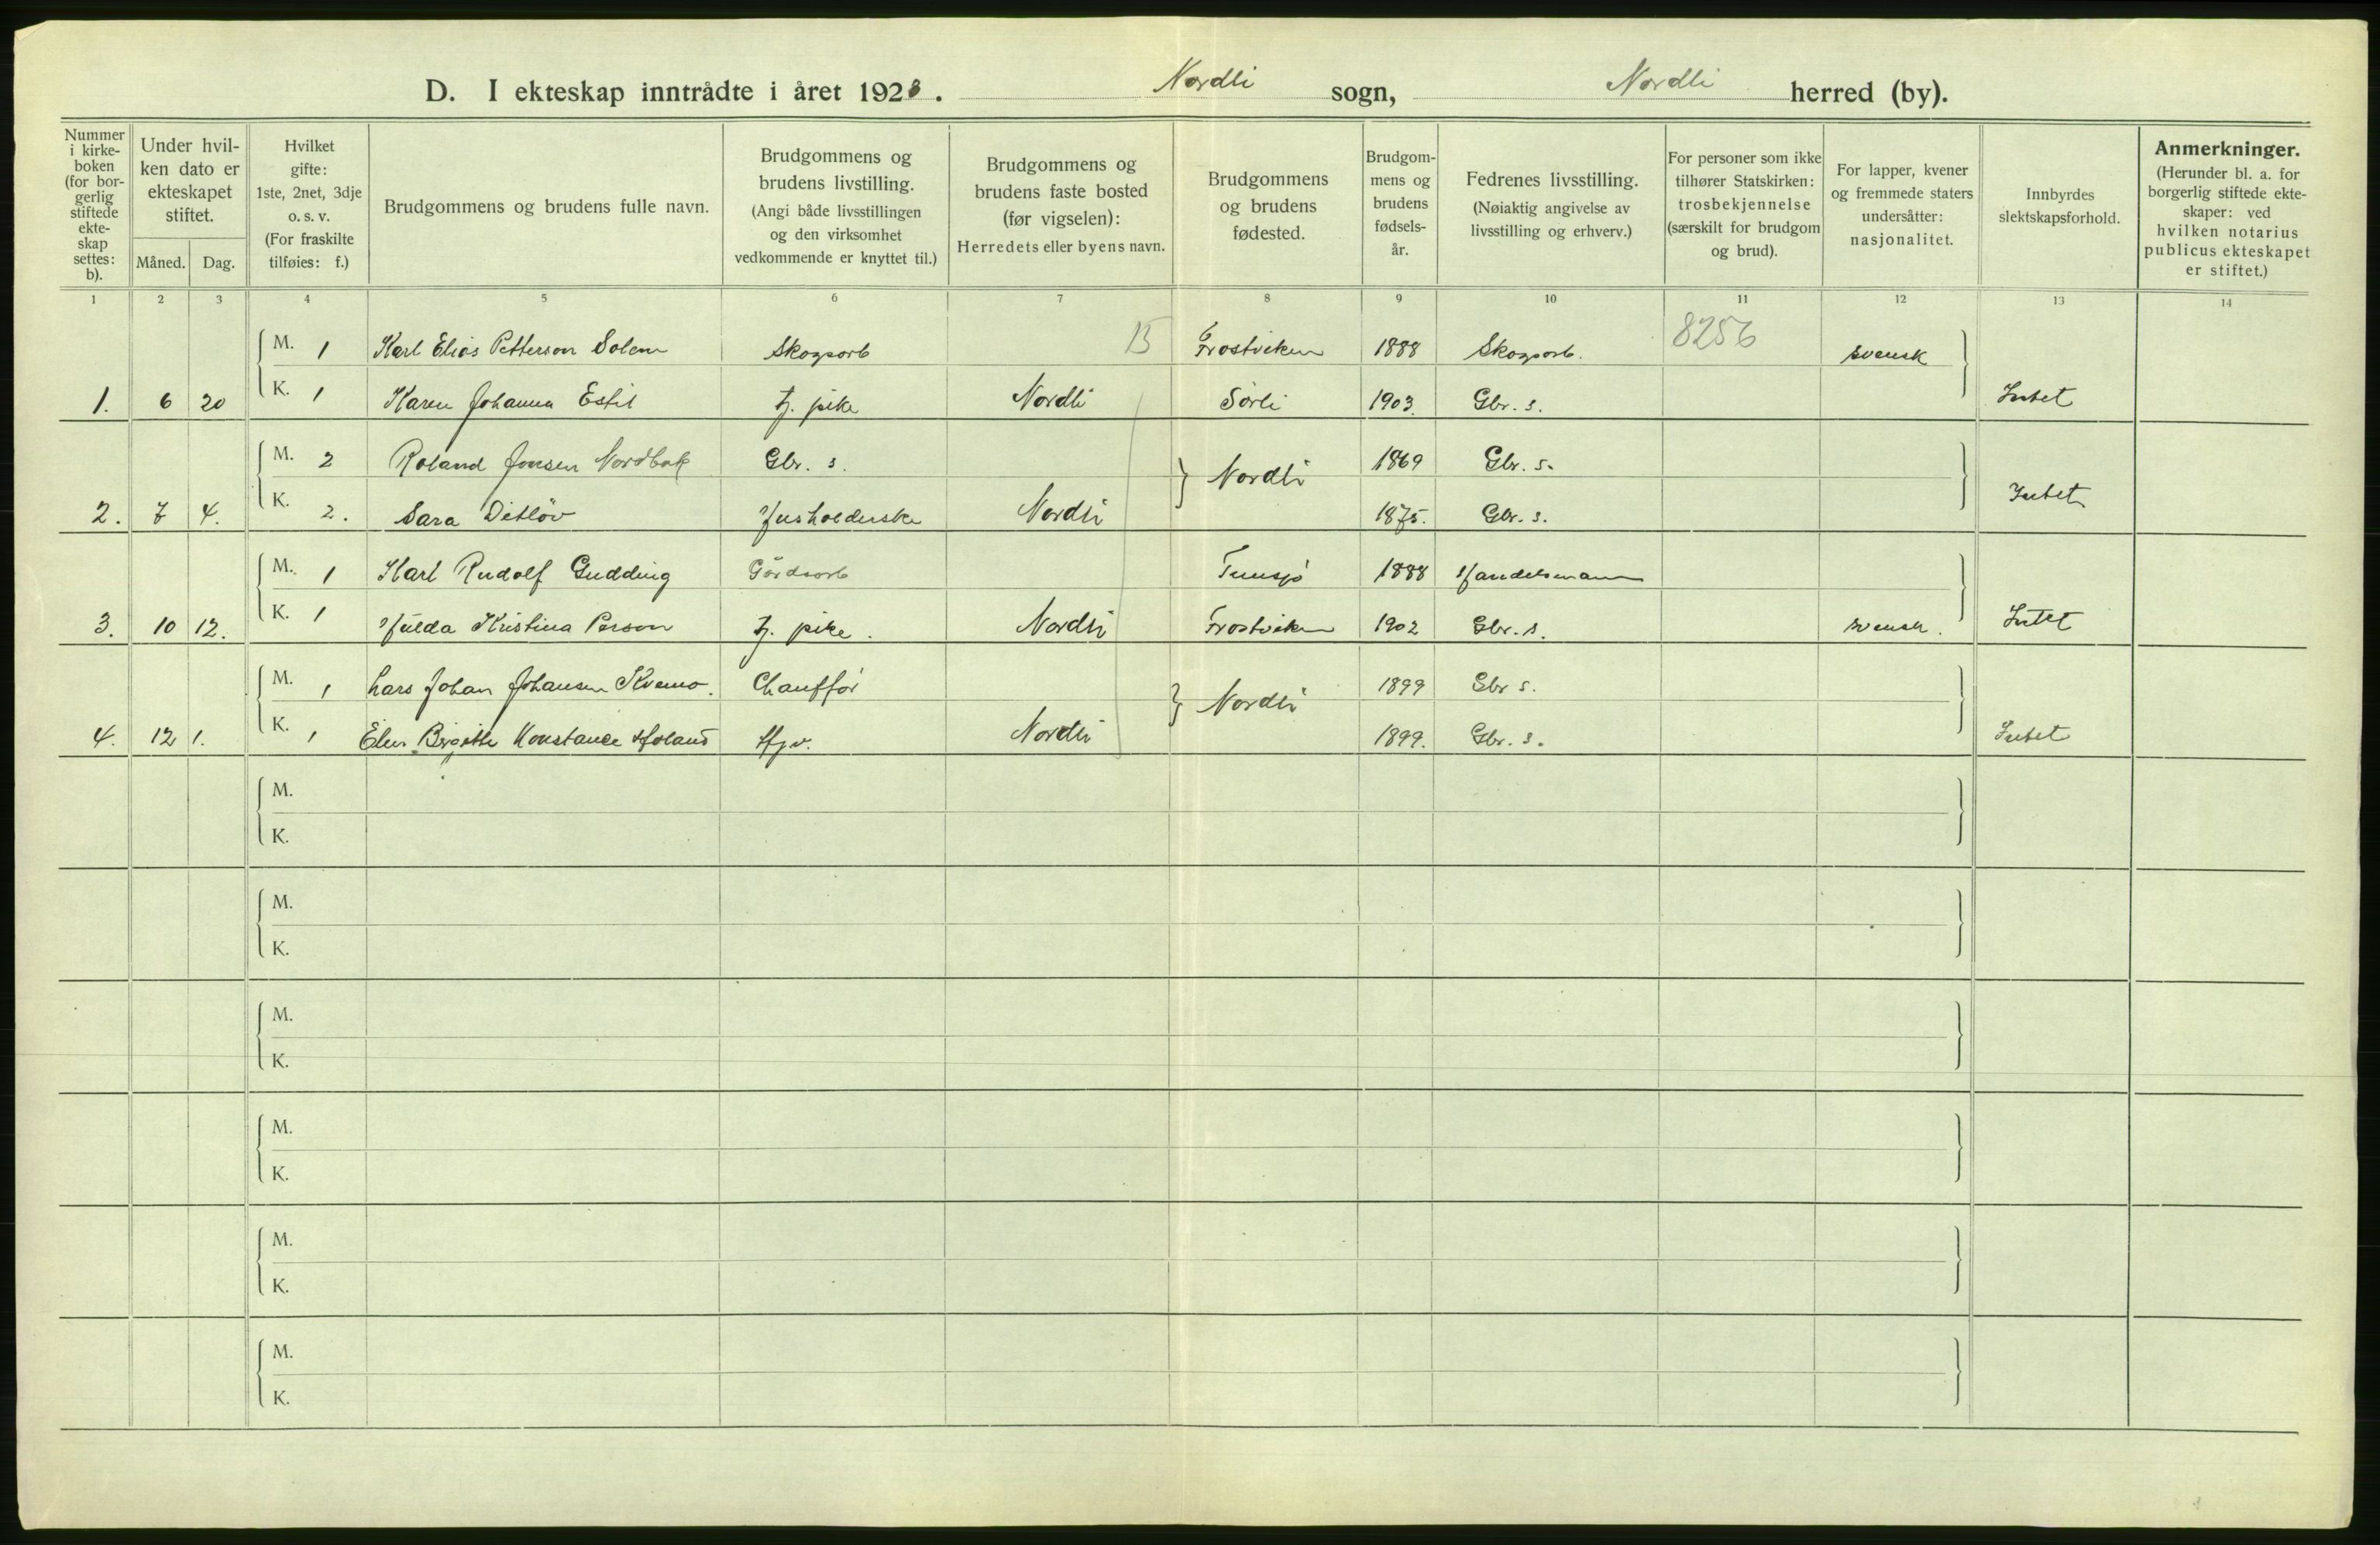 D. I ekteskap inntrådte i året 1928. Nordli sogn, Nordli herred (by).
Nummer i kirkeboken (for borgerlig stiftede ekteskap settes: b).
Under hvilken dato er ekteskapet stiftet.
Måned. Dag.
Hvilket gifte: 1ste, 2net, 3dje o. s. v. (For fraskilte tilføies: f.)
Brudgommens og brudens fulle navn.
Brudgommens og brudens livstilling. (Angi både livsstillingen og den virksomhet vedkommende er knyttet til.)
Brudgommens og brudens faste bosted (før vigselen): Herredets eller byens navn.
Brudgommens og brudens fødested.
Brudgommens og brudens fødselsår.
Fedrenes livsstilling. (Nøiaktig angivelse av livsstilling og erhverv.)
For personer som ikke tilhører Statskirken: trosbekjennelse (særskilt for brudgom og brud).
For lapper, kvener og fremmede staters undersåtter: nasjonalitet.
Innbyrdes slektskapsforhold.
Anmerkninger. (Herunder bl. a. for borgerlig stiftede ekteskaper: ved hvilken notarius publicus ekteskapet er stiftet.)
1 2 3 4 5 6 7 8 9 10 11 12 13 14
M. 1 Karl Elias Petterson Solem Skogsarb 15 Frostviken 1888 Skogsarb. 8256 svensk
1. 6 20 K. 1 Karen Johanna Estil tj. pike Nordli Sørli 1903. Gbr. s. Intet
M. 2 Roland Jonsen Nordbak Gbr. s. Nordli 1869 Gbr. s.
2. 7 4. K. 2. Sara Ditløv Husholderske Nordli 1875. Gbr. s. Intet
M. 1 Karl Rudolf Gudding Gårdsarb Tunsjø 1888 Handelsmann
3. 10 12. K. 1 Hulda Kristina Person tj. pike. Nordli Frostviken 1902 Gbr. s. svensk. Intet
M. 1 Lars Johan Johansen Kvemo. Chauffør Nordli 1899 Gbr s.
4. 12 1. K. 1 Elen Birgitte Konstance Holand Hjv. Nordli 1899. Gbr. s. Intet
M.
K.
M.
K.
M.
K.
M.
K.
M.
K.
M.
K.